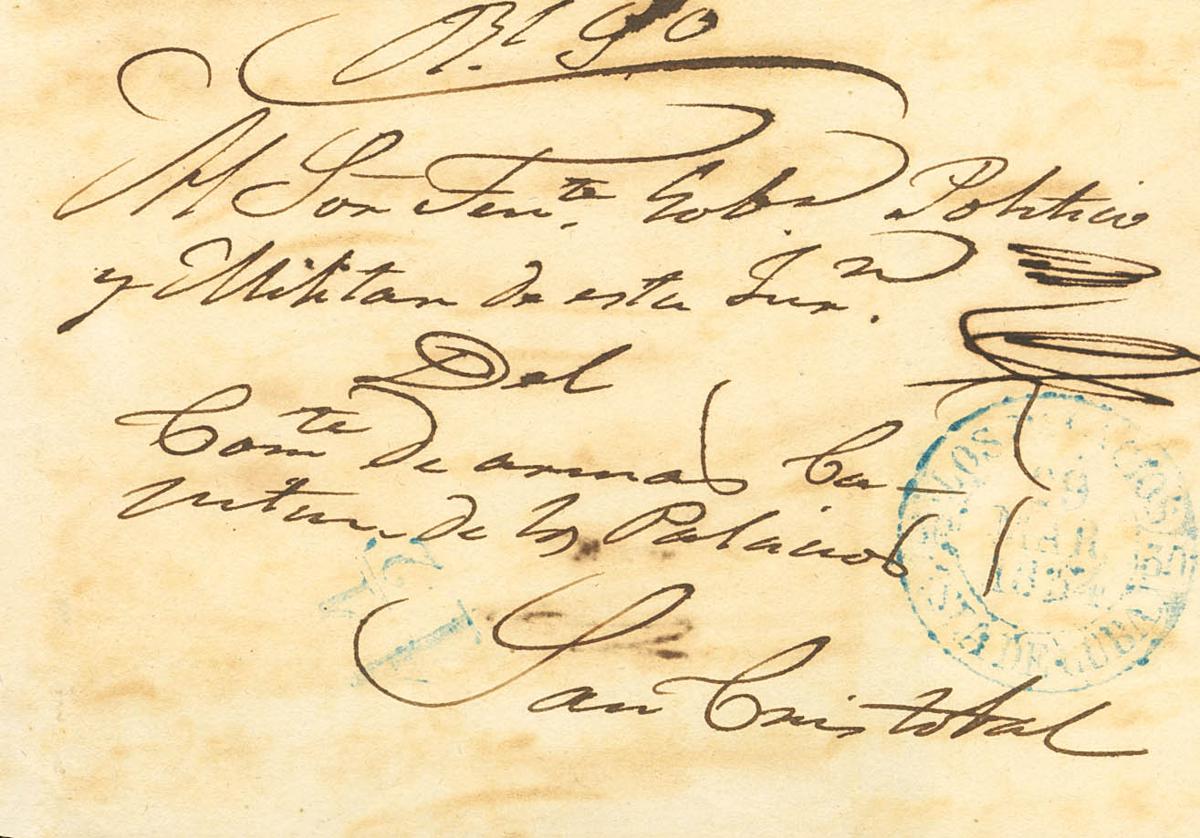 Rl. So
Al Sor Tente. Gobr. Politico
y Militar de esta Jurn.
Del
Comte de armas Ca-
pitan de los Palacios
San Cristobal
LOS PALACIOS
29
MAR
185
ISLA DE CUBA
1/2